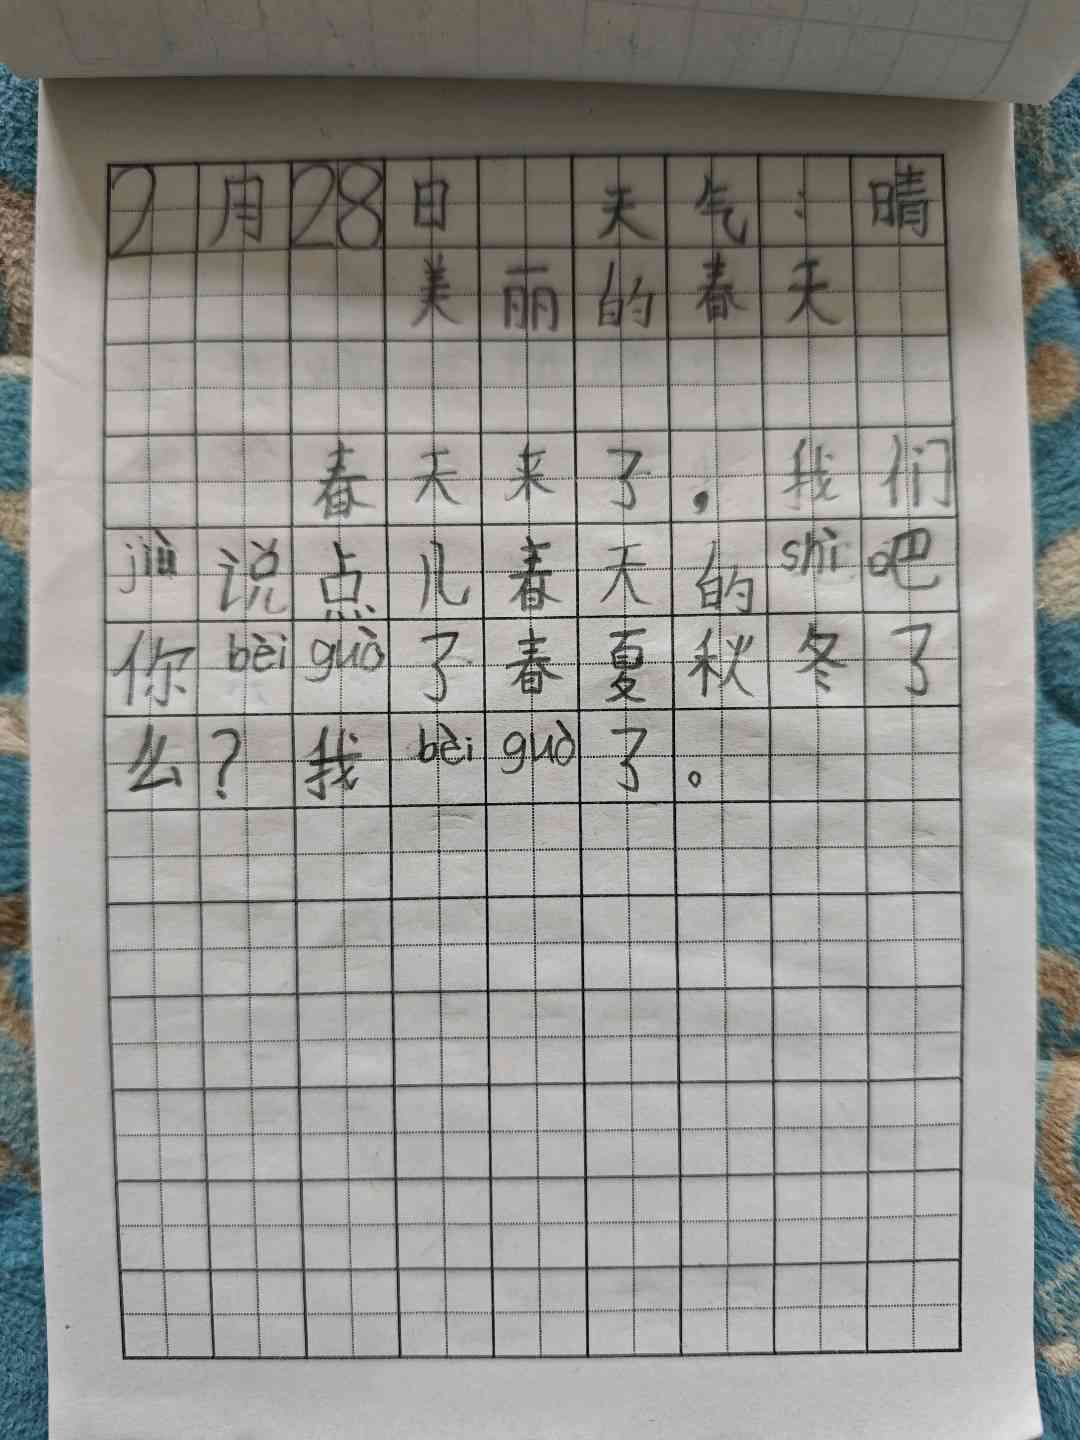 2月28日 天气:晴
美丽的春天
春天来了,我们
jiù说点儿春天的shì吧
你bèi guò了春夏秋冬了
么?我bèi guò了。